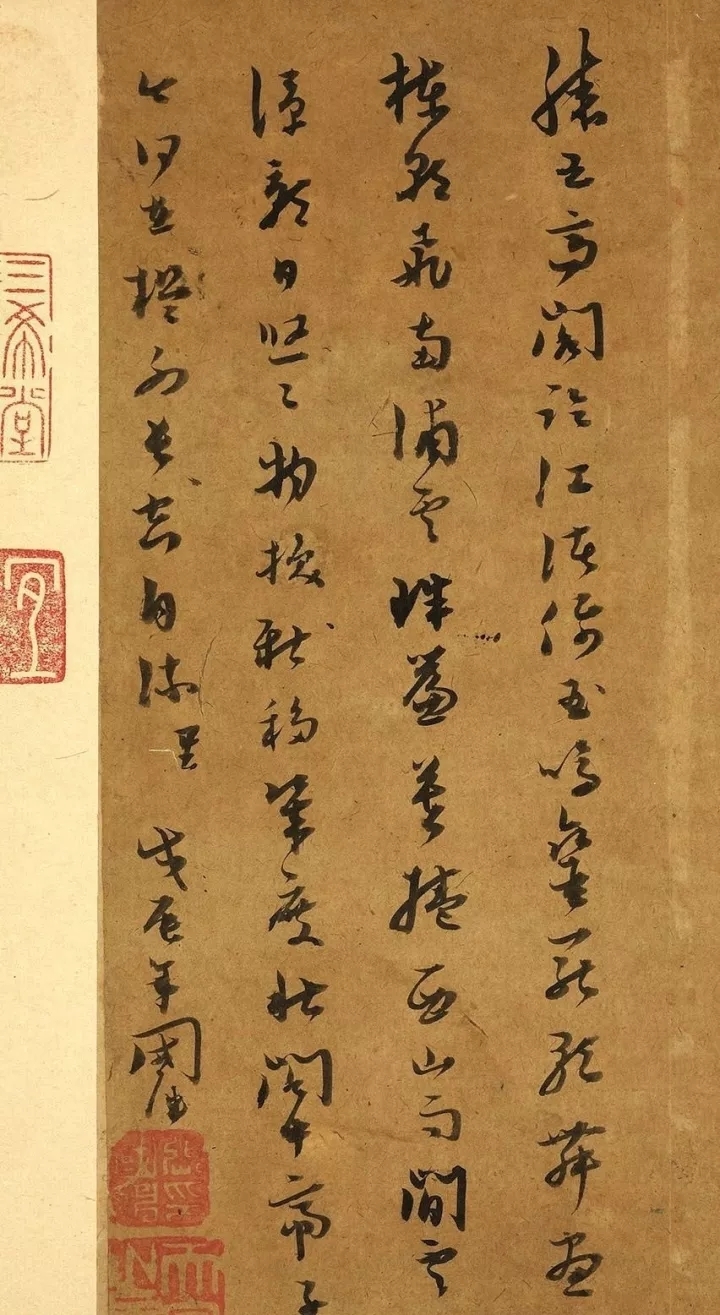 滕王高閣臨江渚佩玉鳴鑾罷歌舞畫
棟朝飛南浦雲珠簾暮捲西山雨閒雲
潭影日悠々物換移幾度秋閣中帝子
今何在檻外長自流星 戊辰年
三希堂
宜